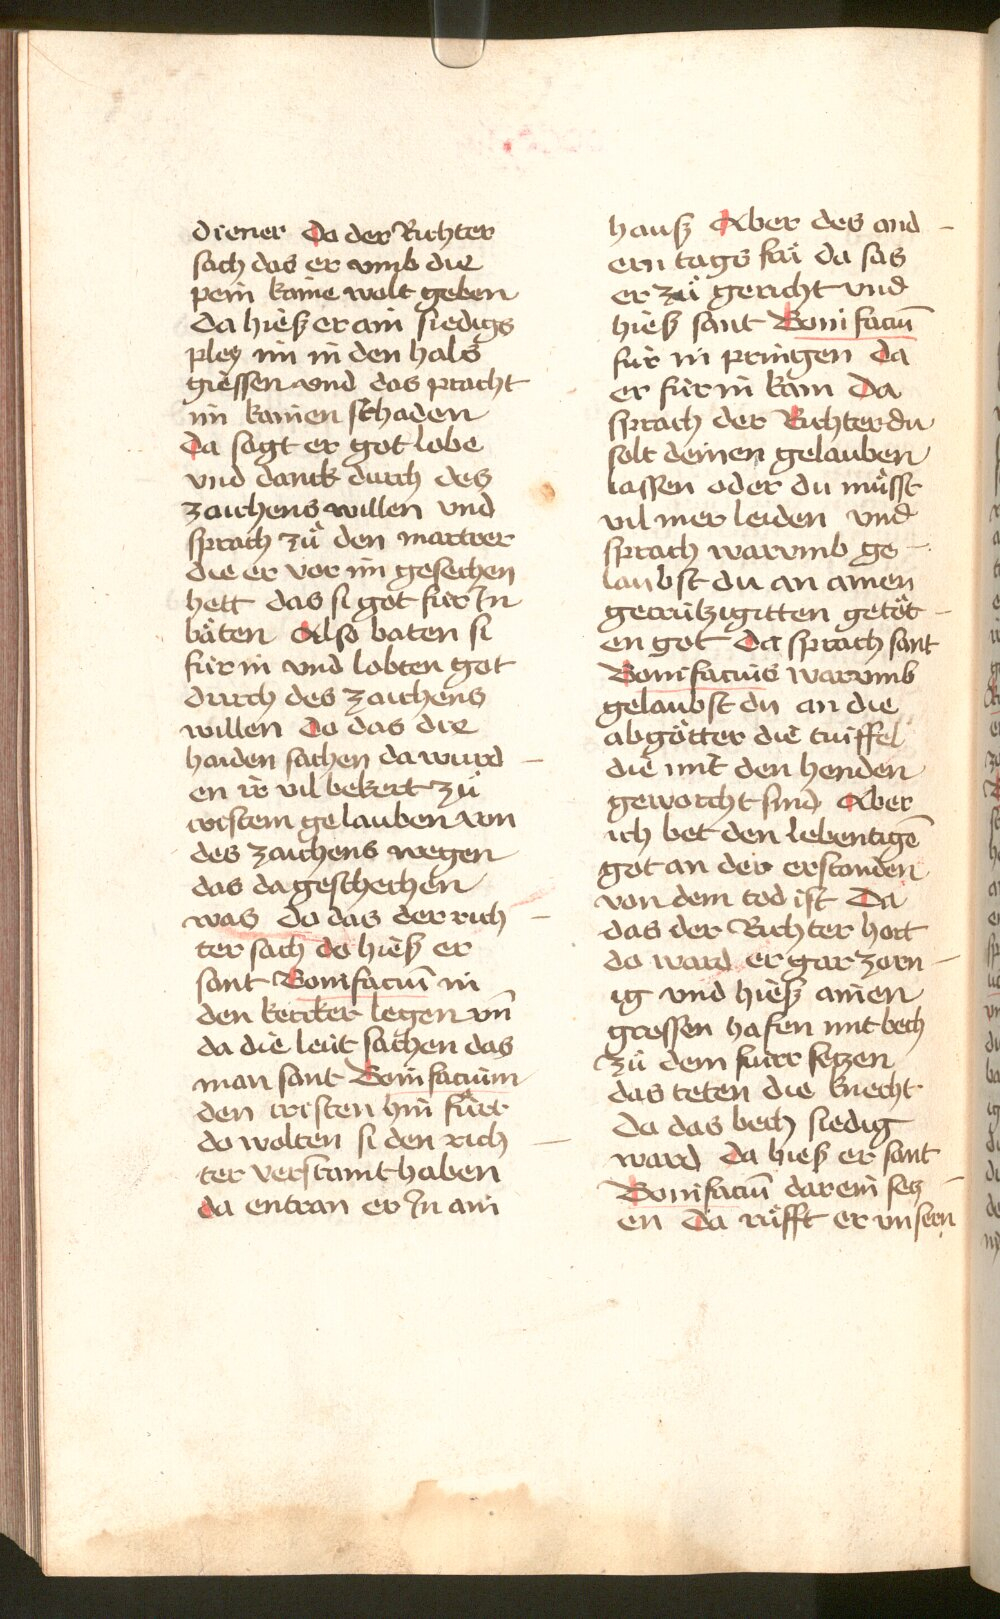 diener Do der Richter
sach das er vmb die
pein kaine wolt geben
Da hieß er ain siedigs
pley im in den hals
giessen vnd das pracht
im kainen schaden
Da sagt er got lobe
vnd danck durch des
zaichens willen vnd
sprach zů den martrer
die er vor im gesechen
hett das si got für In
bäten Also baten si
für in vnd lobten got
durch des zaichens
willen Do das die
haiden sachen da wurd
en ir vil bekert zů
cristem gelauben von
des zaichens wegen
das da geschechen
was do das der rich
ter sach do hieß er
sant Bonifaciū in
den kercker legen vn̄
da die leüt sachen das
man sant Bonifacium
den cristen hin fürt
do wolten si den rich
ter verstaint haben
da entran er In ain
hauß Aber des and
ern tags frü da sas
er zů gericht vnd
hieß sant Bonifaciū
für in pringen Da
er für in kam Da
sprach der Richter du
solt deinen gelauben
lassen oder du müsst
vil mer leiden vnd
sprach warvmb ge
laubst du an ainen
gecrützigitten getöt
en got Da sprach sant
Bonifacius warvmb
gelaubst du an die
abgötter die tuiffel
die mit den henden
geworcht sind Aber
ich bet den lebentigē
got an der erstanden
von dem tod ist Da
das der Richter hort
do ward er gar zorn
ig vnd hieß ainen
grossen hafen mit bech
zů dem fuirr setzen
das teten die knecht
Da das bech siedig
ward Da hieß er sant
Bonifaciū darein setz
en Da rüfft er vnsern